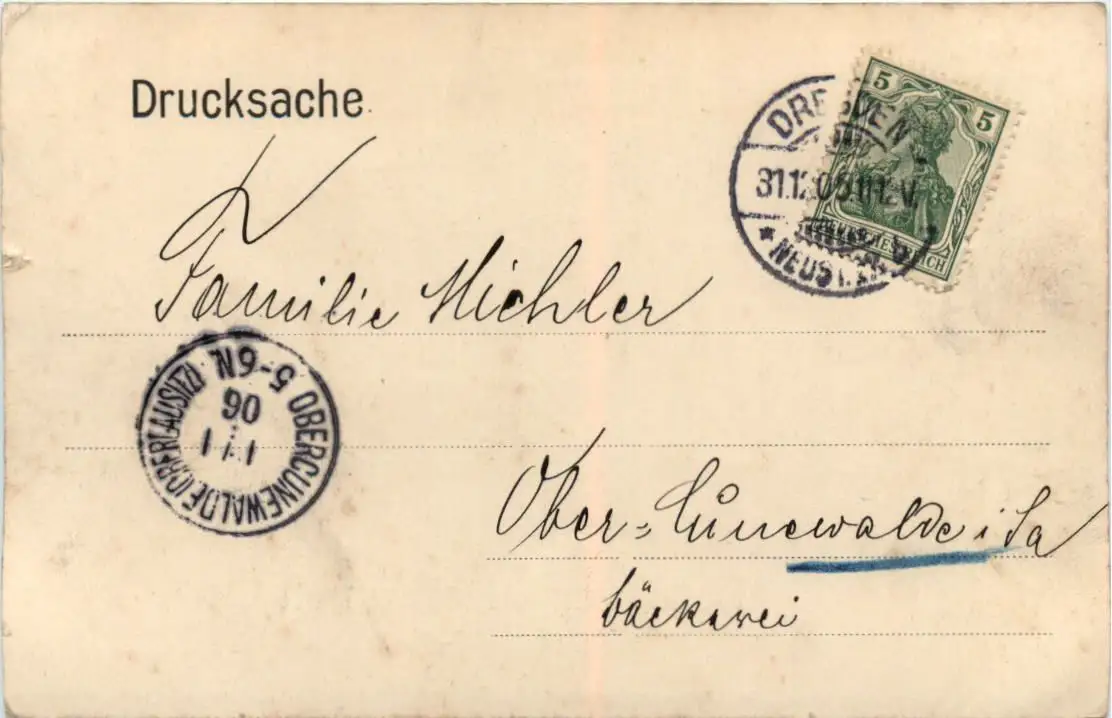 Drucksache.
5 5
DRESDEN
31.12.05.11-12V.
* NEUST.
Familie Michler
OBERCUNEWALDE (OBERLAUSITZ)
5-6N.
1 1
06
Ober=Cunewalde i Sa
bäckerei